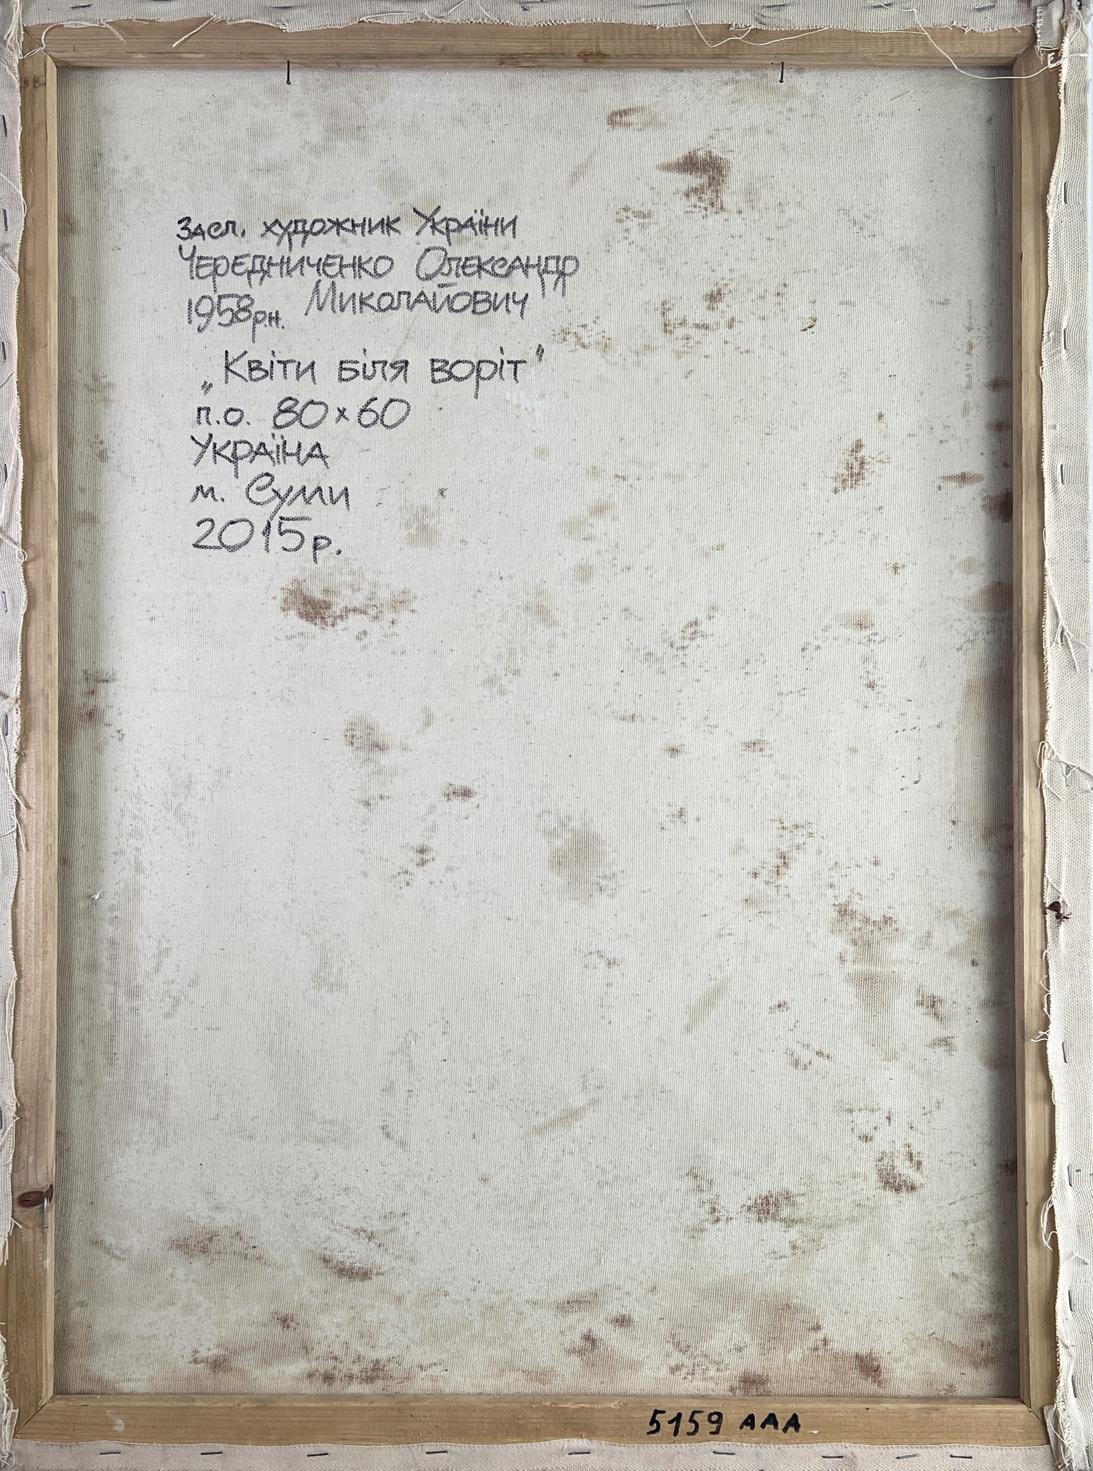 Засл. художник України
Чередниченко Олександр
1958рн. Миколайович
„Квіти біля воріт"
п.о. 80×60
Україна
м. Суми
2015р.
5159 AAA